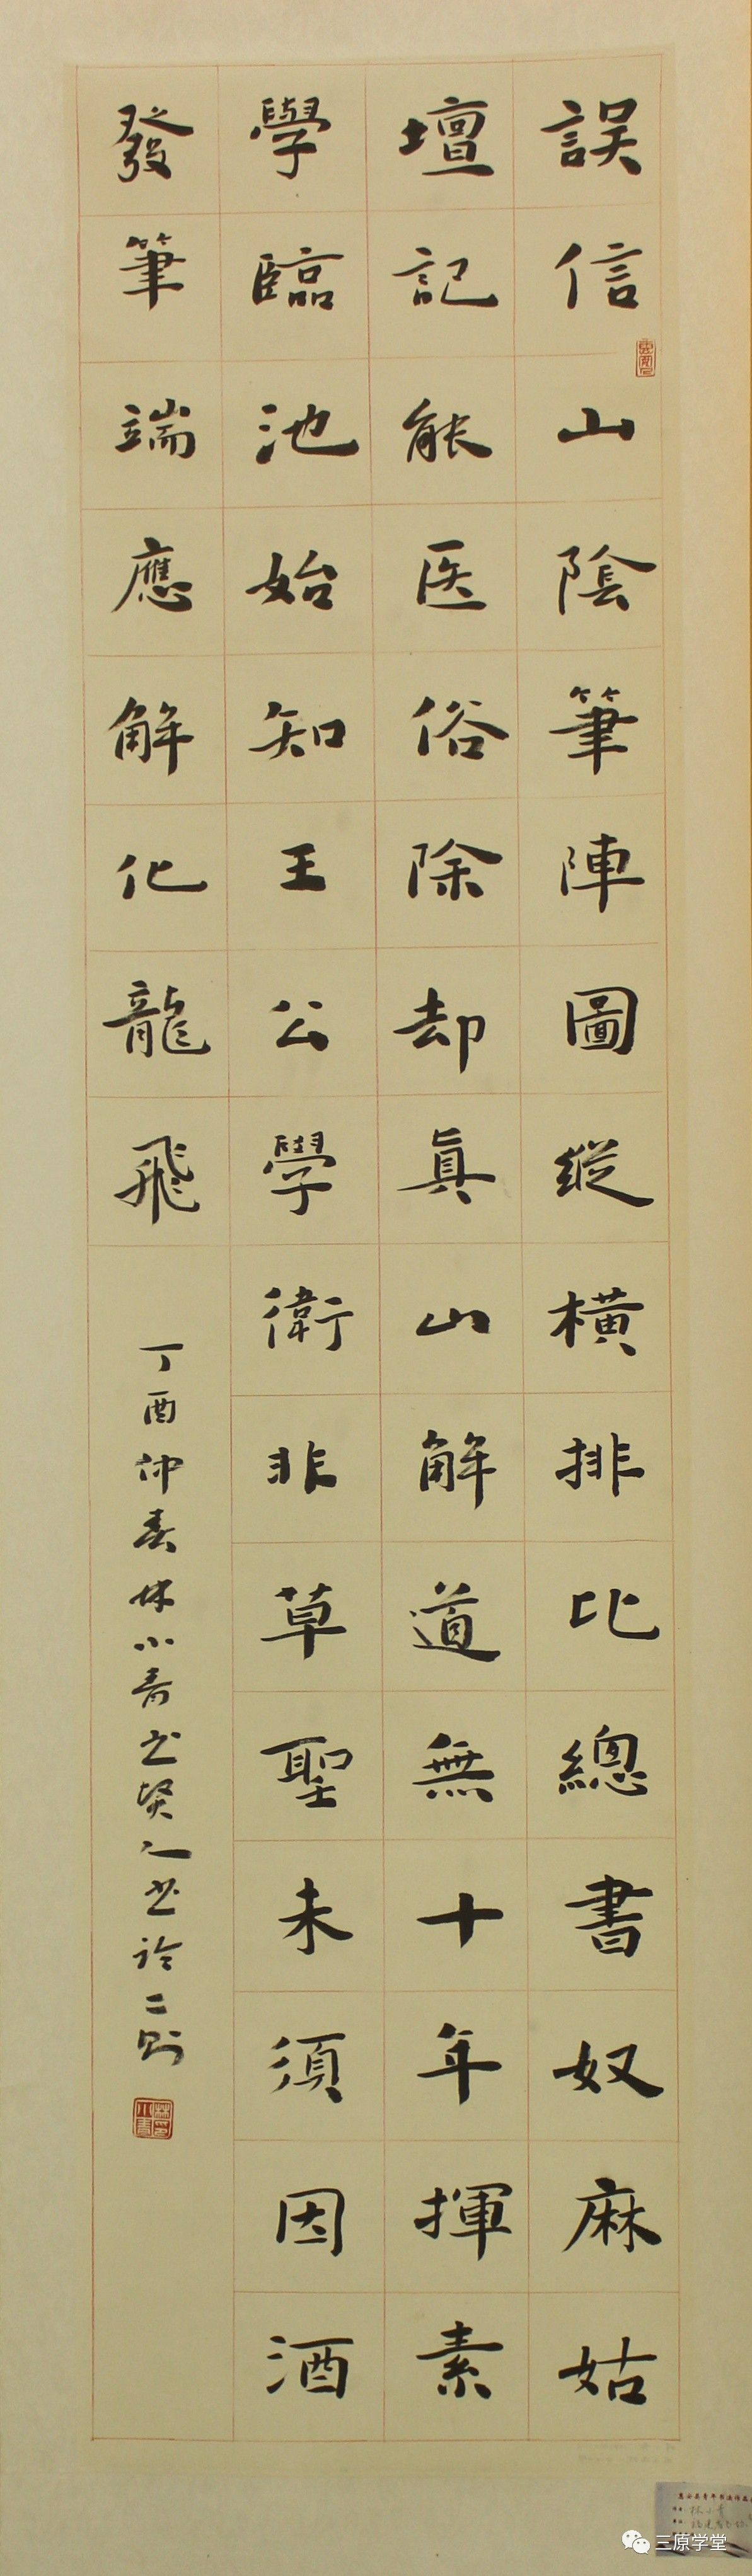 誤信山陰筆陣圖縱橫排比總書奴麻姑
壇記能医俗除却真山解道無十年揮素
學臨池始知王公學衛非草聖未須因酒
發筆端應解化龍飛
丁酉仲春林小青書賢人書論二則
三原学堂